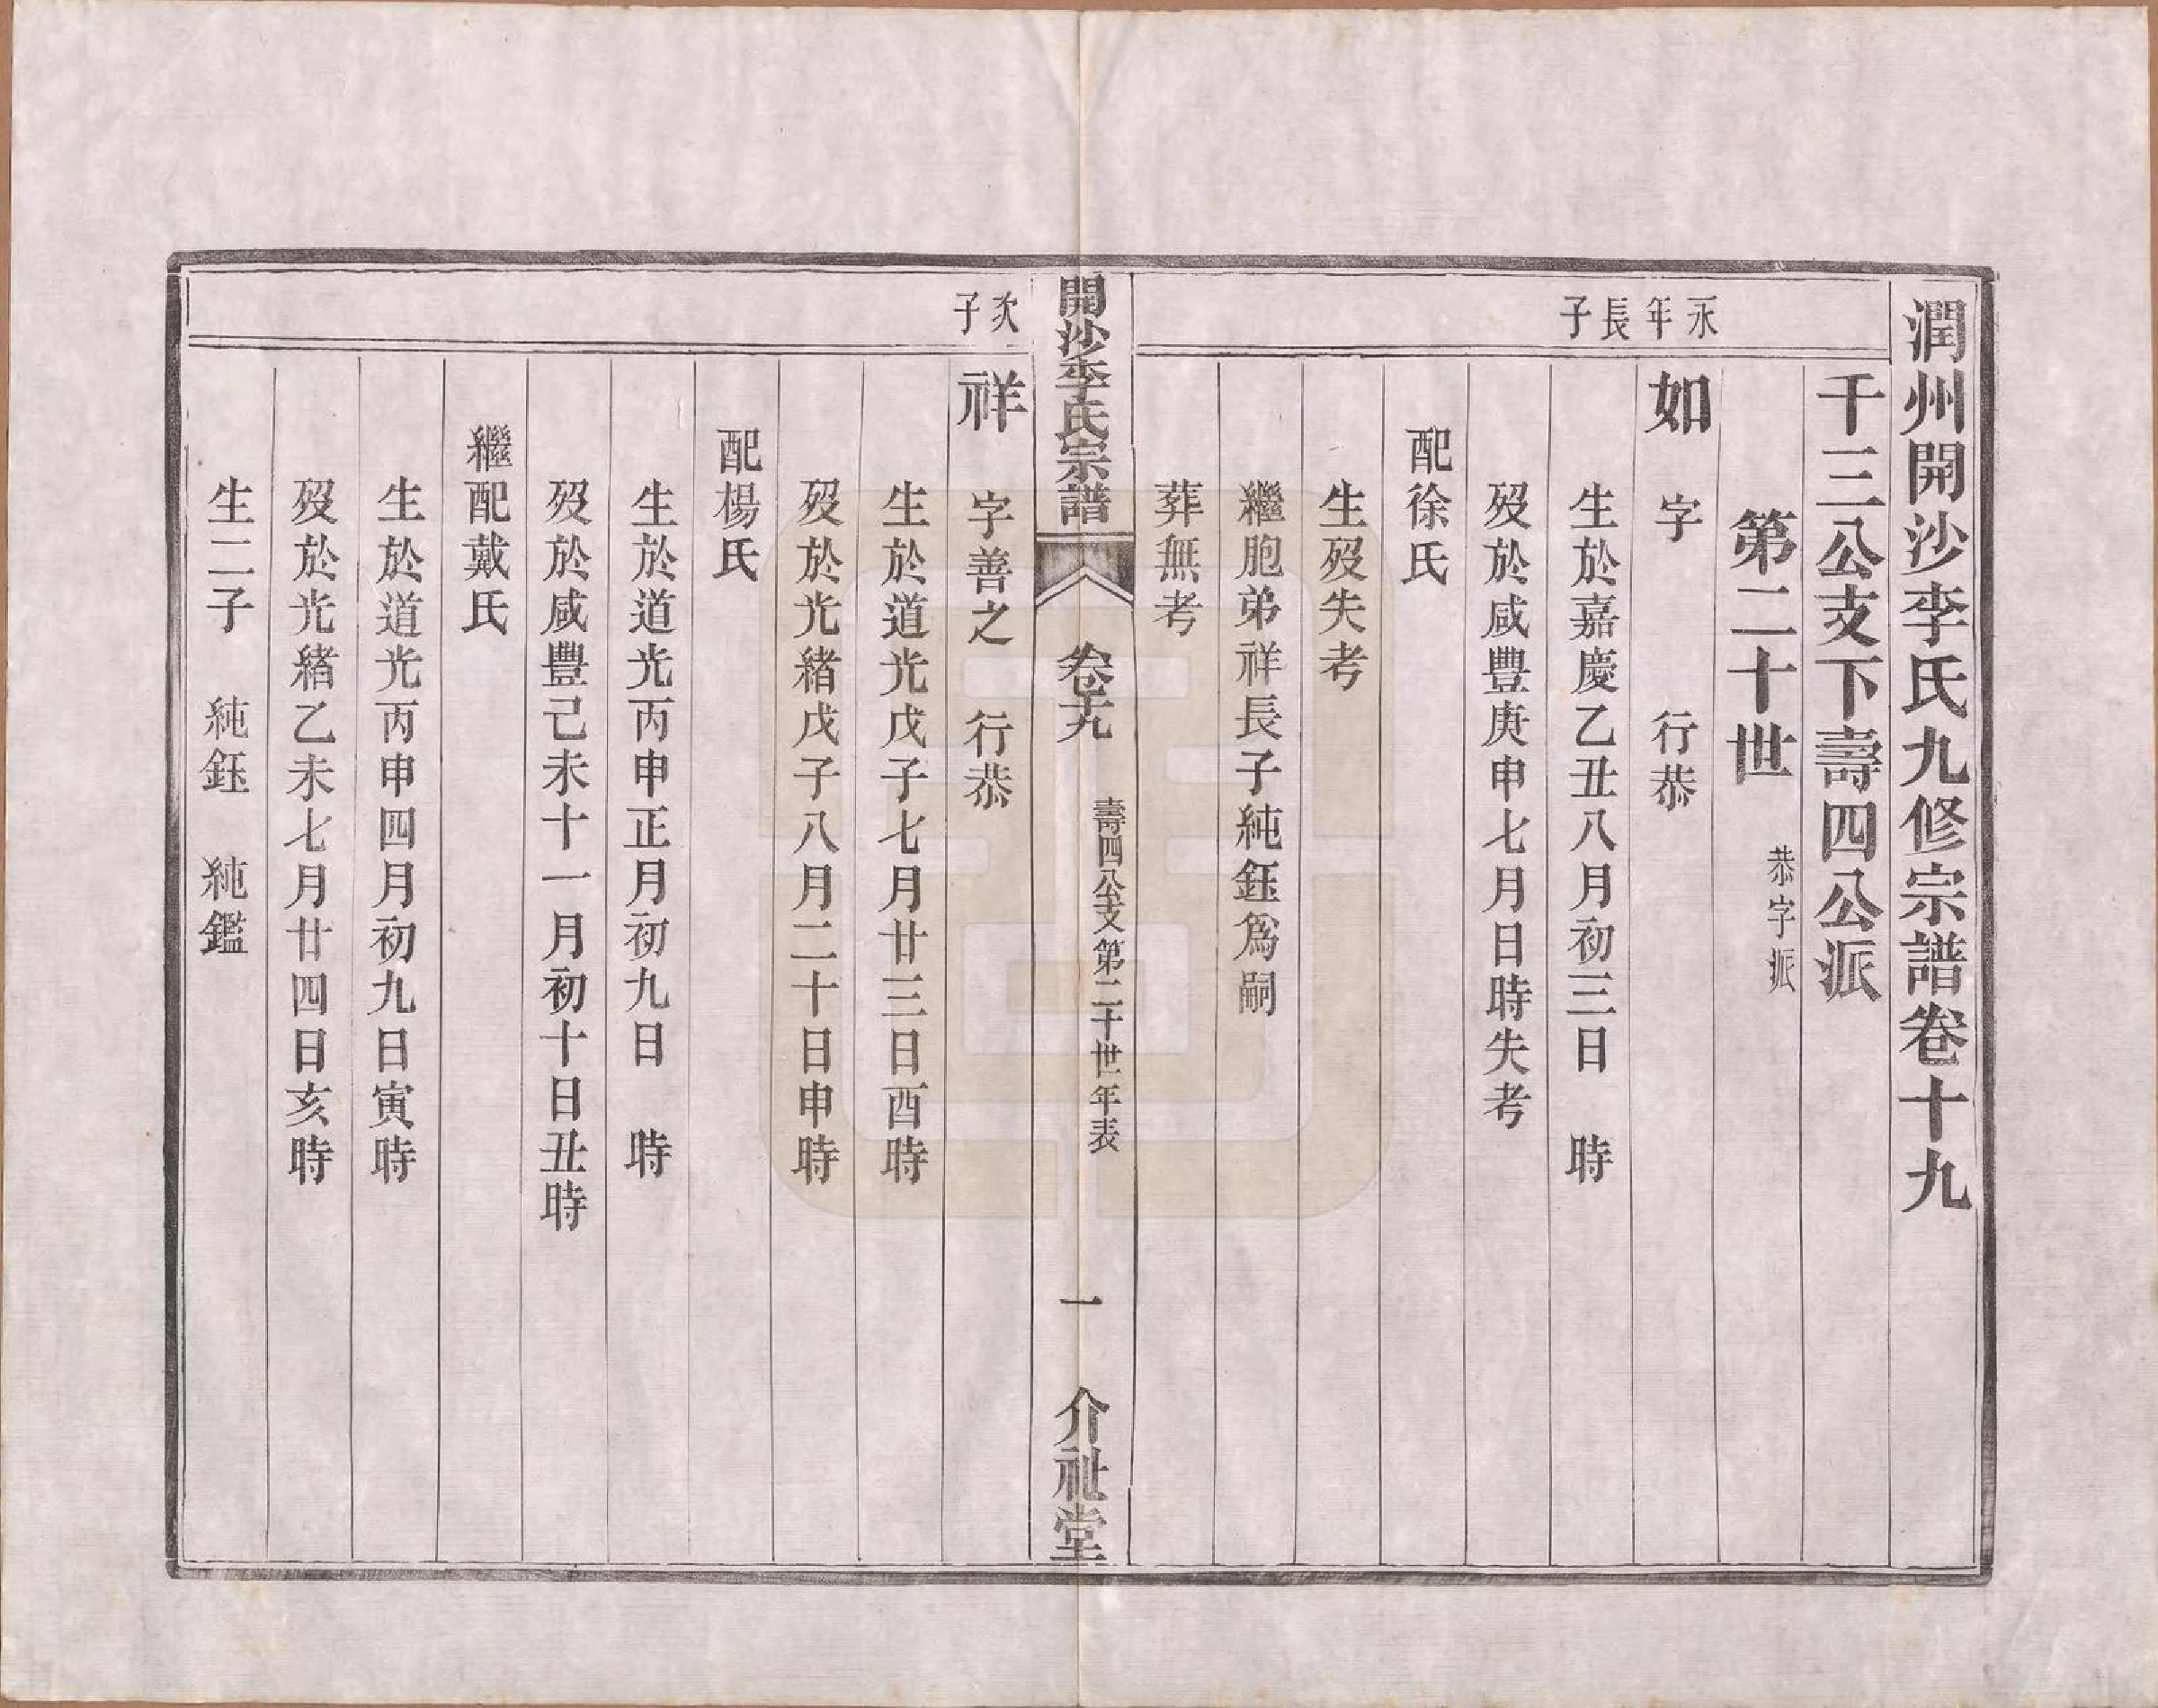 潤州開沙李氏九修宗譜卷十九
千三公支下壽四公派
第二十世 恭字派
永年長子
如 字 行恭
生於嘉慶乙丑八月初三日 時
歿於咸豐庚申七月日時失考
配徐氏
生歿失考
繼胞弟祥長子純鈺爲嗣
葬無考
開沙李氏宗譜 卷十九 壽四公支第二十世年表 一 介祉堂
次子
祥 字善之 行恭
生於道光戊子七月廿三日酉時
歿於光緒戊子八月二十日申時
配楊氏
生於道光丙申正月初九日 時
歿於咸豐己未十一月初十日丑時
繼配戴氏
生於道光丙申四月初九日寅時
歿於光緒乙未七月廿四日亥時
生二子 純鈺 純鑑